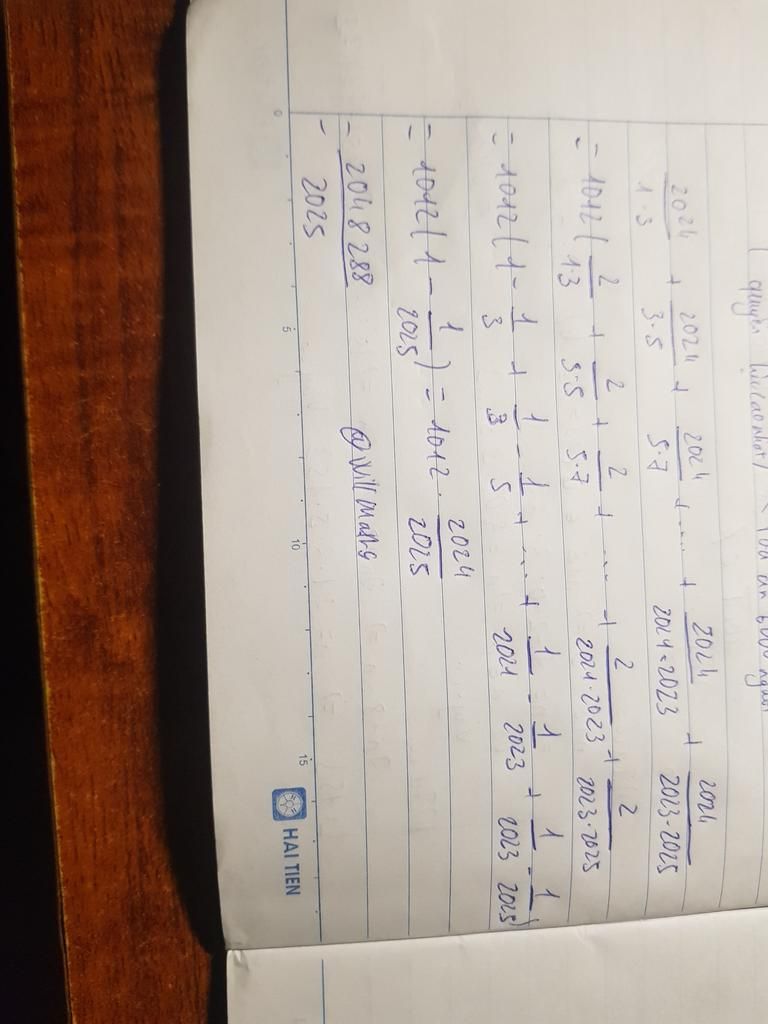 2024/1·3 + 2024/3·5 + 2024/5·7 + .... + 2024/2021·2023 + 2024/2023·2025
= 1012( 2/1·3 + 2/3·5 + 2/5·7 + .... + 2/2021·2023 + 2/2023·2025
= 1012( 1 - 1/3 + 1/3 - 1/5 + .... + 1/2021 - 1/2023 + 1/2023 - 1/2025)
= 1012( 1 - 1/2025 ) = 1012 · 2024/2025
= 2048288/2025
@Will Maths
0 5 10 15
HAI TIEN